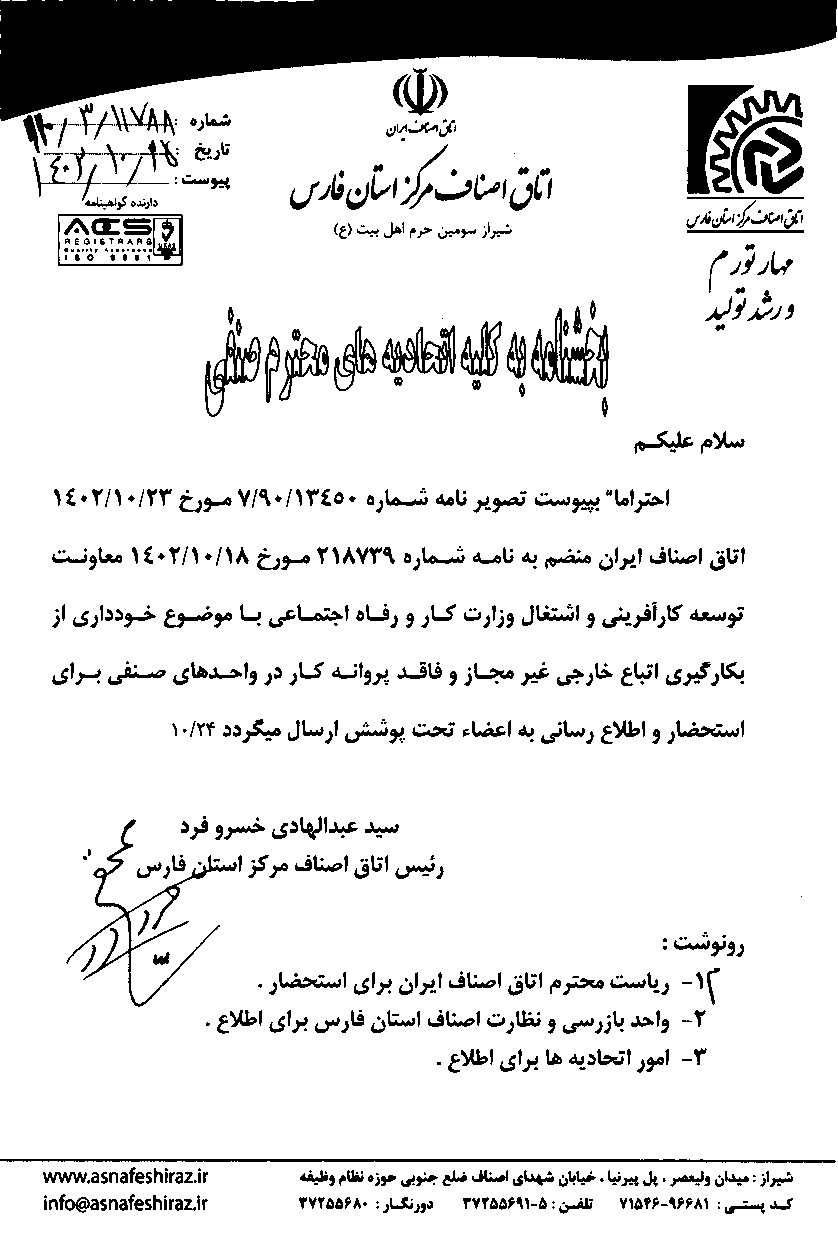 اتاق اصناف ایران
اتاق اصناف مرکز استان فارس
شیراز سومین حرم اهل بیت (ع)
شماره :
تاریخ : ۱۴۰۲/۱۰/
پیوست :
دارنده گواهینامه
ACS
REGISTRARS
ISO 9001
اتاق اصناف مرکز استان فارس
مهار تورم
و رشد تولید
بخشنامه به کلیه اتحادیه های محترم صنفی
سلام علیکم
احتراما" بپیوست تصویر نامه شماره ۷/۹۰/۱۳۴۵۰ مورخ ۱۴۰۲/۱۰/۲۳
اتاق اصناف ایران منضم به نامه شماره ۲۱۸۷۳۹ مورخ ۱۴۰۲/۱۰/۱۸ معاونت
توسعه کارآفرینی و اشتغال وزارت کار و رفاه اجتماعی با موضوع خودداری از
بکارگیری اتباع خارجی غیر مجاز و فاقد پروانه کار در واحدهای صنفی برای
استحضار و اطلاع رسانی به اعضاء تحت پوشش ارسال میگردد ۱۰/۲۴
سید عبدالهادی خسرو فرد
رئیس اتاق اصناف مرکز استان فارس
رونوشت :
۱- ریاست محترم اتاق اصناف ایران برای استحضار .
۲- واحد بازرسی و نظارت اصناف استان فارس برای اطلاع .
۳- امور اتحادیه ها برای اطلاع .
شیراز : میدان ولیعصر ، پل پیرنیا ، خیابان شهدای اصناف ضلع جنوبی حوزه نظام وظیفه
کد پستی : ۷۱۵۴۶-۹۶۶۸۱ تلفن : ۵-۳۷۲۵۵۶۹۱ دورنگار : ۳۷۲۵۵۶۸۰
www.asnafeshiraz.ir
info@asnafeshiraz.ir